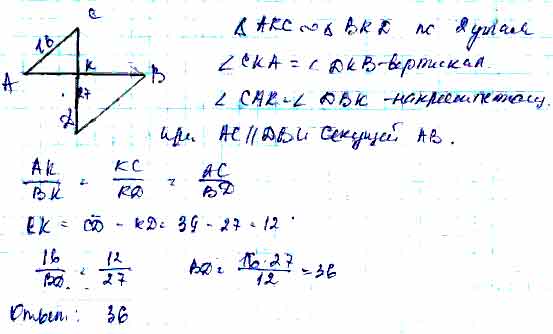 C
16
A
K
B
27
D
Δ AKC ∾ Δ BKD по 2 углам
∠ CKA = ∠ DKB - вертикал.
∠ CAK = ∠ DBK - накрест лежащ.
при AC || DB и секущей AB.
AK/BK = KC/KD = AC/BD
CK = CD - KD = 39 - 27 = 12
16/BD = 12/27 BD = 16·27/12 = 36
Ответ: 36